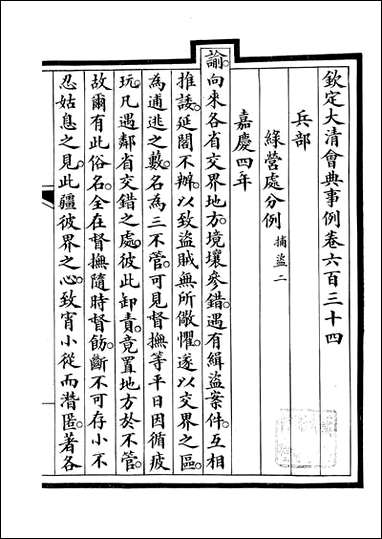 欽定大清會典事例卷六百三十四
兵部
緑營處分例 捕盜二
嘉慶四年
諭。向來各省交界地方。境壤參錯。遇有緝盜案件。互相
推諉。延閣不辦。以致盜賊無所儆懼。遂以交界之區。
為逋逃之藪。名為三不管。可見督撫等平日因循疲
玩。凡遇鄰省交錯之處。彼此卸責。竟置地方於不管。
故爾有此俗名。全在督撫隨時督飭。斷不可存小不
忍姑息之見。此疆彼界之心。致宵小從而潛匿。著各